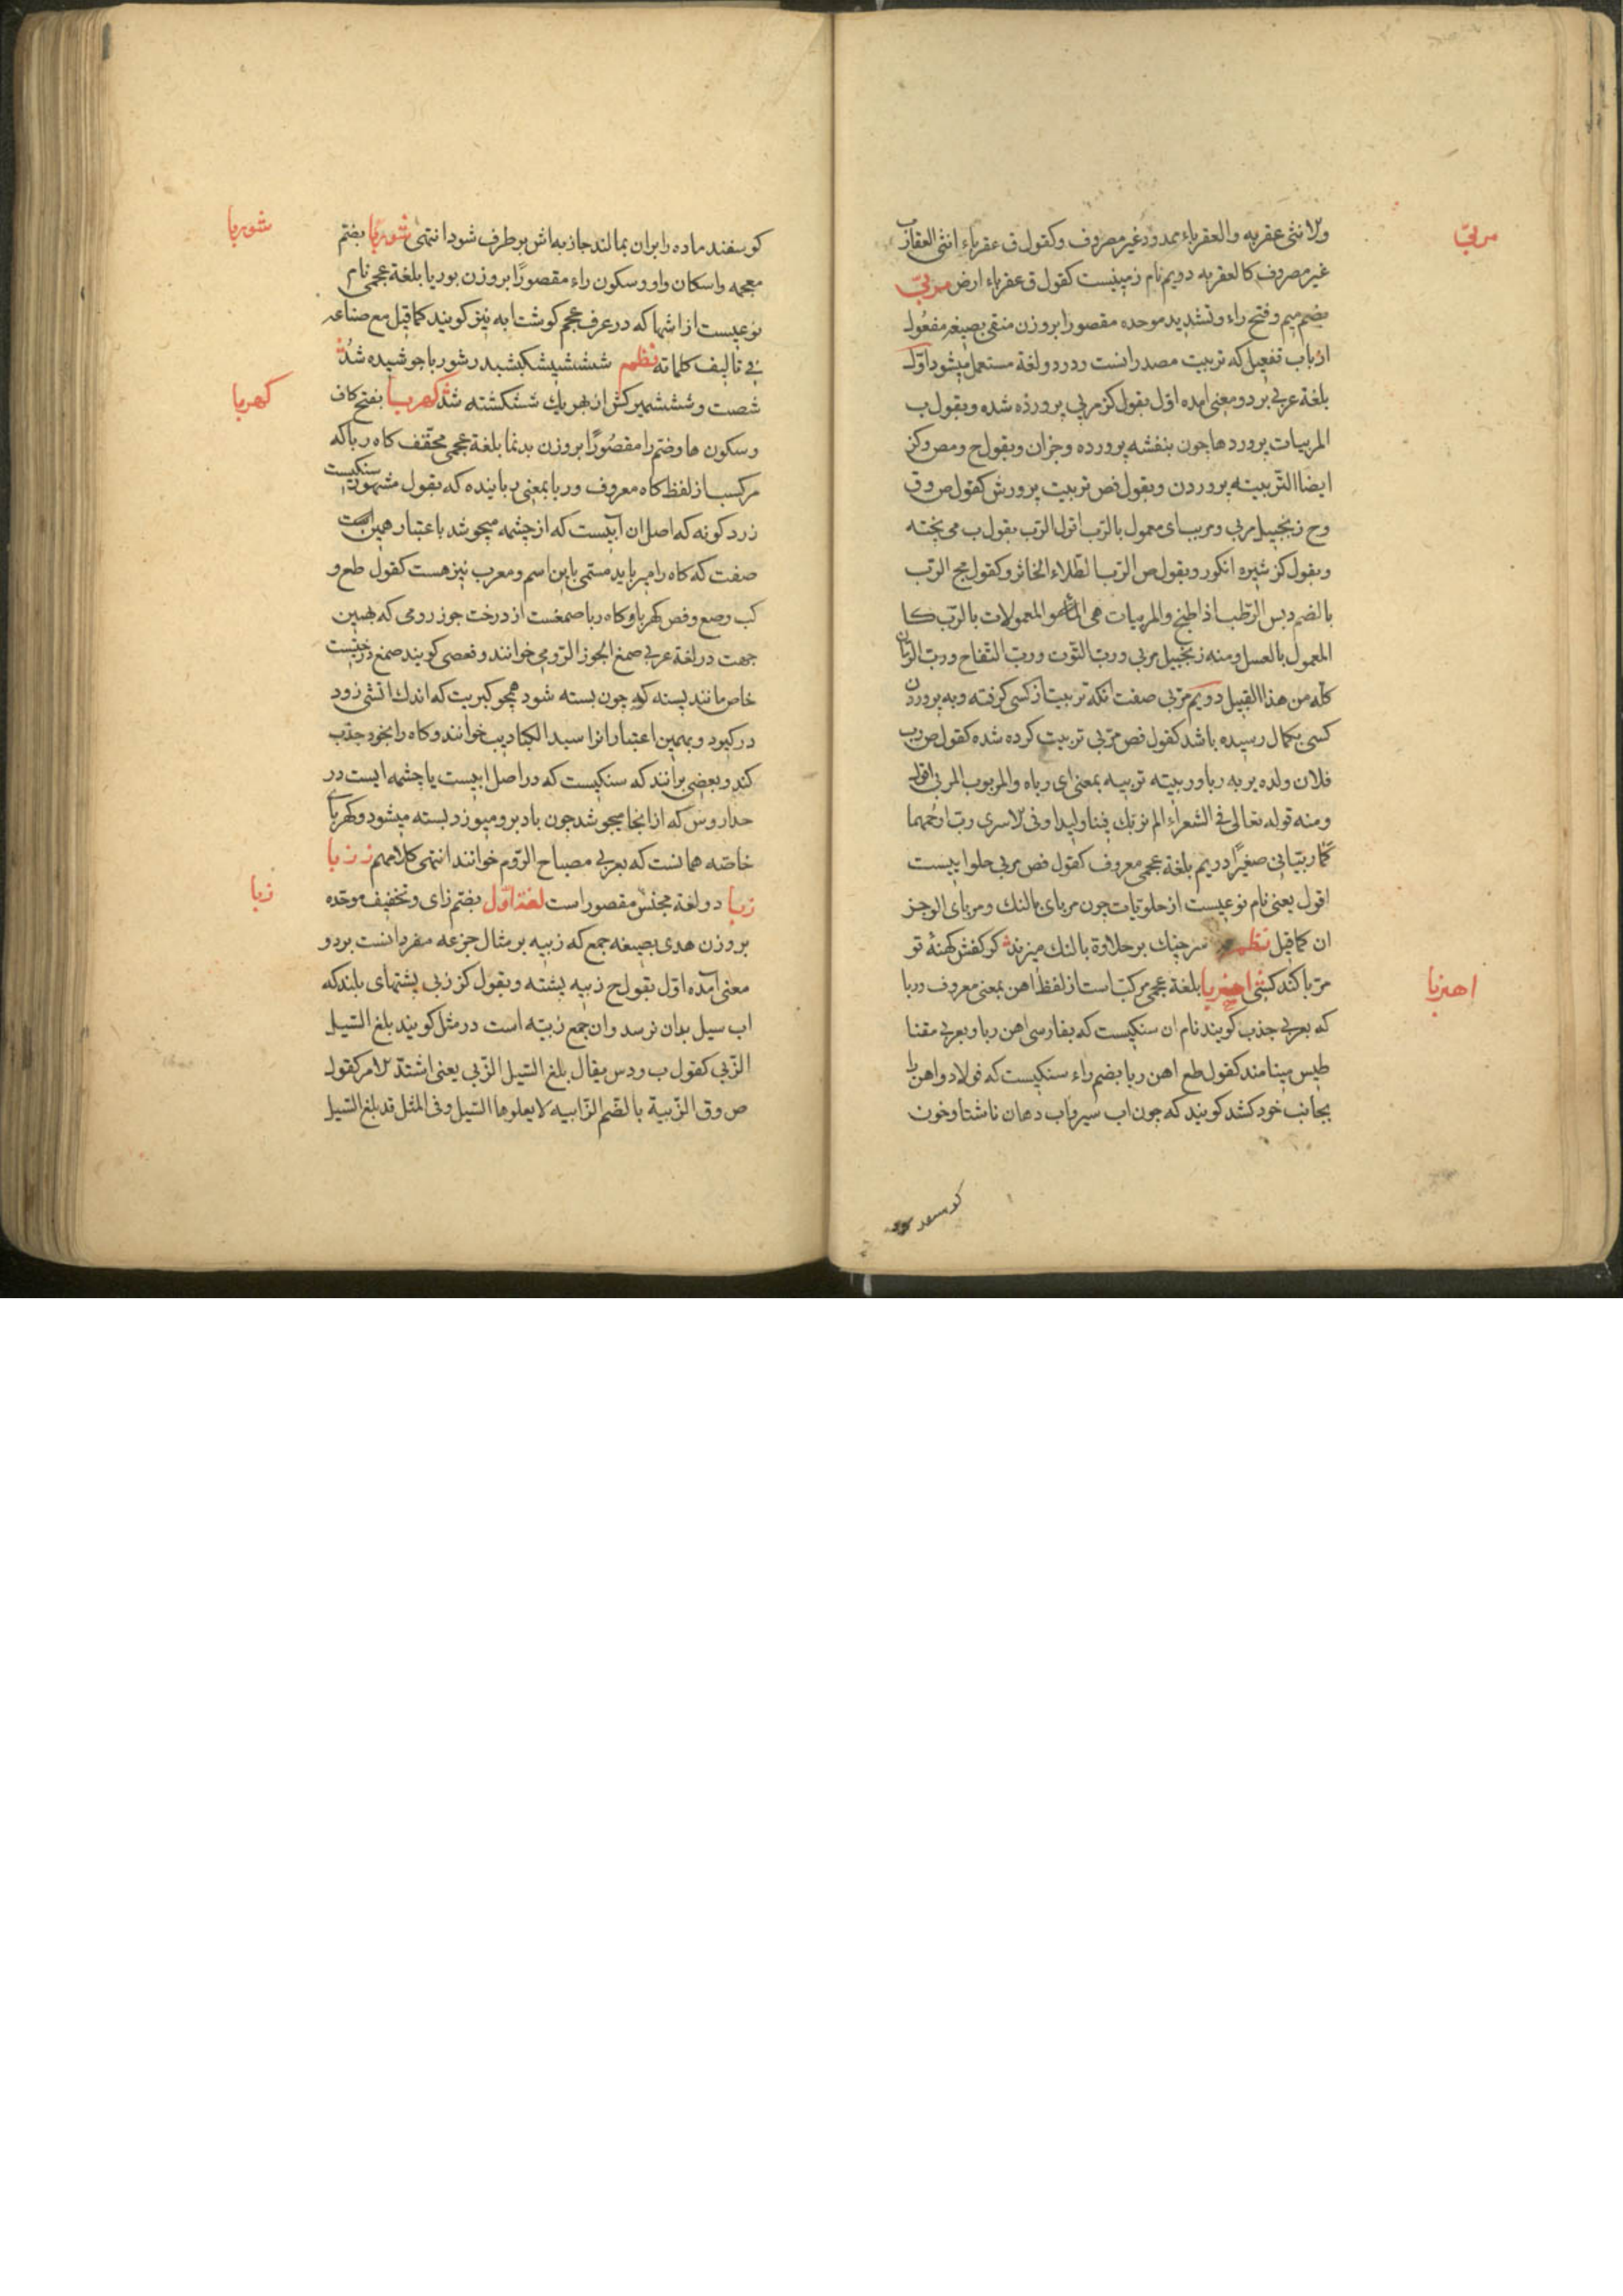 مربّی
ولانثی عقربه والعقرباء بمدود غیر مصروف وکقول ق عقرباء انثی العقارب
غیر مصروف کالعقربه دویم نام زمینیست کقول ق عقرباء ارض مربّی
بضم میم وفتح راء وتشدید موحده مقصورا بروزن منقی بصیغه مفعول
از باب تفعیل که تربیت مصدر انست ودر دو لغة مستعمل میشود اوّل
بلغة عربی بر دو معنی امده اوّل بقول کز مربی پرورده شده وبقول ب
المربیات پروردها چون بنفشه پرورده وجزان وبقول ح ومص وکز
ایضا التربیته پروردن وبقول فص تربیت پرورش کقول ص وق
وح زنجبیل مربی ومربب ای معمول بالرّب اقول الرّب بقول ب می پخته
وبقول کز شیره انکور وبقول ص الرّب الطّلاء الخاثر وکقول مج الرّب
بالضم دبس الرّطب اذا طبخ والمربیات هی المعمولات بالرّب کا
المعمول بالعسل ومنه زنجبیل مربی وربّ التّوت وربّ التّفاح وربّ الرّمان
کلّه من هذا القبیل دویم مربّی صفت انکه تربیت از کسی کرفته وبه پروردن
کسی بکمال رسیده باشد کقول فص مربّی تربیت کرده شده کقول ص رب
فلان ولده یربه ربا وربیته تربیه بمعنی ای رباه والمربوب المربی اقول
ومنه قوله تعالی فی الشعراء الم نربّک فینا ولیدا وفی الاسری ربّ ارحمهما
کما ربّیانی صغیرًا دریم بلغة عجمی معروف کقول فص مربی حلواییست
اقول یعنی نام نوعیست از حلویّات چون مربای بالنک ومربای الو جز
ان کما قیل نظم سرچنک بر حلاوة بالنک میزند کر کفش کهنهٔ تو
مربّا کند کشی اهنربا بلغة عجمی مرکّب است از لفظ اهن بمعنی معروف وربا
که بعربی جذب کویند نام ان سنکیست که بفارسی اهن ربا وبعربی مقنا
طیس مینامند کقول طع اهن ربا بضم راء سنکیست که فولاد واهن را
بجانب خود کشد کویند که چون اب سیر واب دهان ناشتا وخون
اهنربا
شوربا
کوسفند ماده را بران بمالند جاذبه اش برطرف شود انتهی شوربا بضم
معجمه واسکان واو وسکون راء مقصورًا بروزن بوریا بلغة عجمی نام
نوعیست از اشها که در عرف عجم کوشتابه نیز کویند کما قیل مع صناعه
فی تالیف کلماته نظم شوربا جوشیده شد
شصت وشش کش از هر یک شتکشته شد کهربا بفتح کاف
وسکون ها وضم را مقصورًا بروزن بدنما بلغة عجمی مخفّف کاه ربا که
مرکبست از لفظ کاه معروف وربا بمعنی رباینده که بقول مشهور سنکیست
زرد کونه که اصل ان آبیست که از چشمه میجوشد باعتبار همین
صفت که کاه را میرباید مسمّی باین اسم ومعرب نیز هست کقول طع و
کب وصع وفص کهربا وکاه ربا صمغست از درخت جوز رومی که بهمین
جهت در لغة عربی صمغ الجوز الرّومی خوانند وفصی کویند صمغ درختیست
خاص مانند پسته که چون بسته شود همچو کبریت که اندک اتشی زود
در کیرد وبهمین اعتبار انرا سید الکباریب خوانند وکاه را بخود جذب
کند وبعضی برانند که سنکیست که در اصل ابیست یا چشمه ایست در
که از انجا میجوشد چون باد برو میوزد بسته میشود وکهربای
خاصّه همانست که بعربی مصباح الرّوم خوانند انتهی کلامهم
زبا
زبا دو لغة مجنّس مقصور است لغة اوّل بضم زای وتخفیف موحّده
بروزن هدی بصیغه جمع که زبیه بر مثال جزعه مفرد انست بر دو
معنی آمده اوّل بقول ح زبیه پشته وبقول کز زبی پشتهای بلند که
اب سیل بدان نرسد وان جمع زبیّه است در مثل کویند بلغ السّیل
الزّبی کقول ب ودس یقال بلغ السّیل الزّبی یعنی اشتدّ الامر کقول
ص وق الزّبیة بالضّم الرّابیه لا یعلوها السّیل وفی المثل قد بلغ السّیل
کهربا